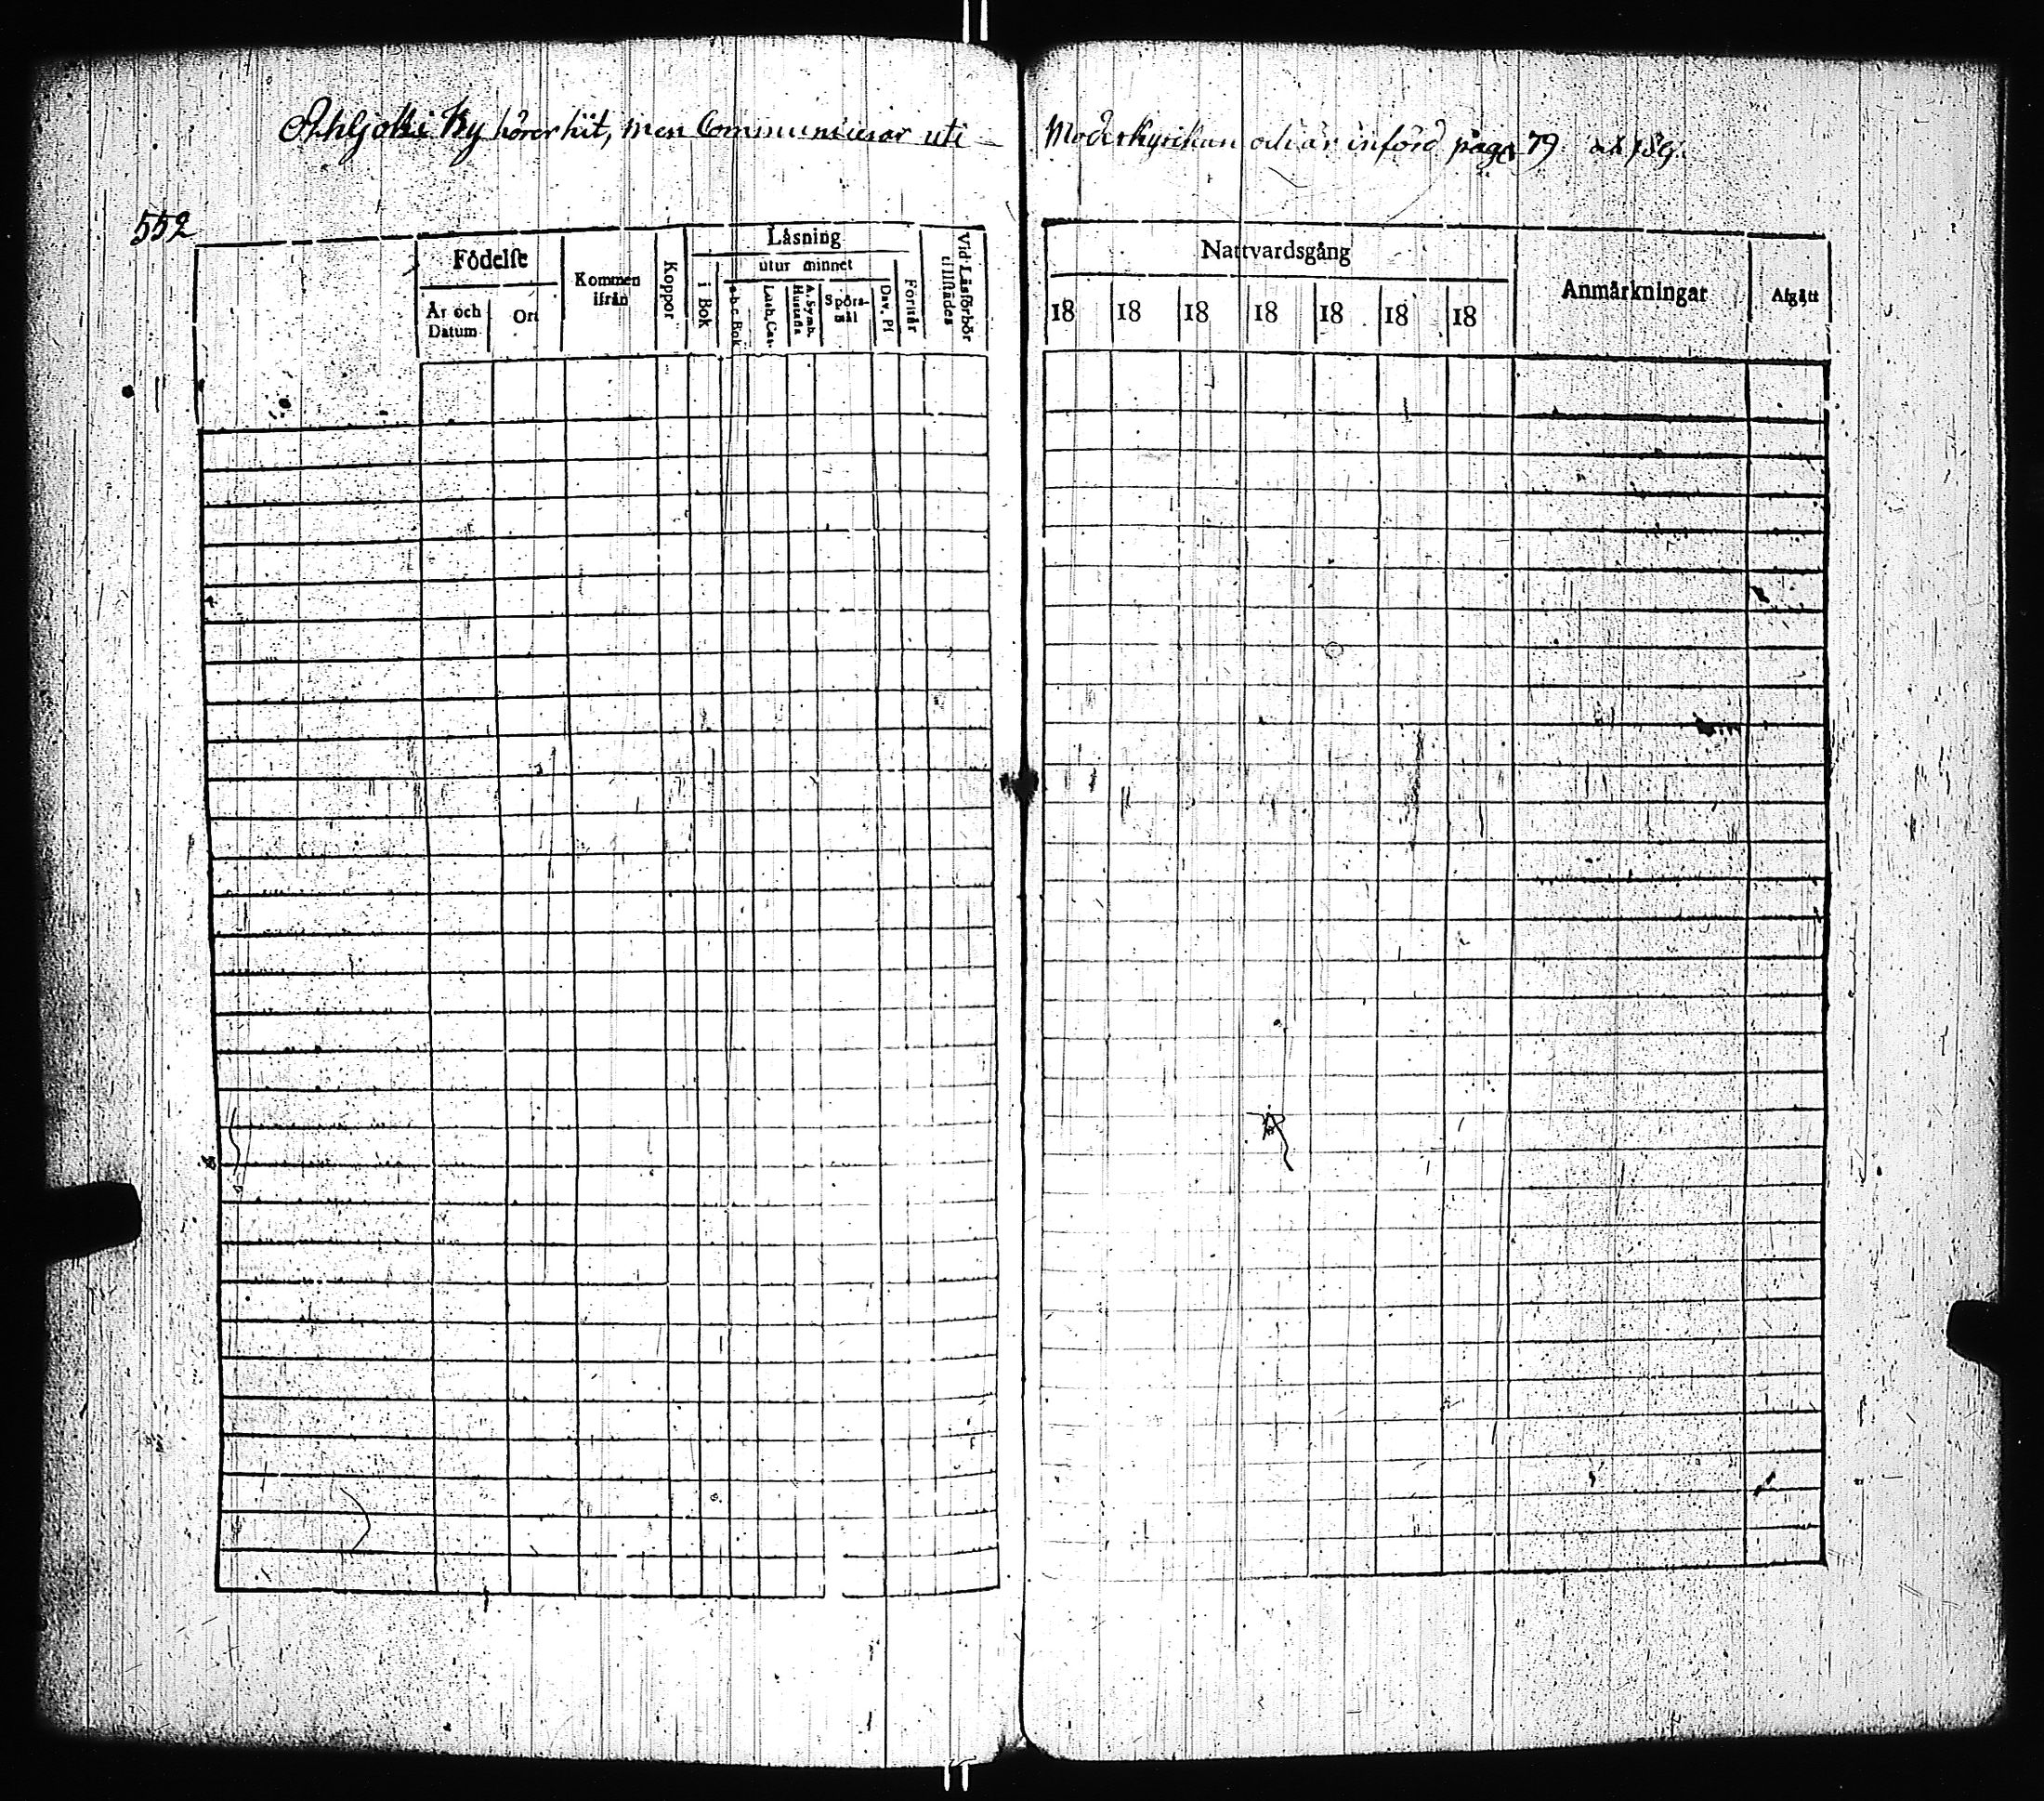 Ahljoki By hörer hit, men Communicerar uti Moderkyrkan och är införd pag. 79
552
Födelse
År och Datum
Ort
Kommen ifrån
Koppor
Läsning
i Bok
utur minnet
a-b-c Bok
Luth. Cat.
A. Symb. Hustafla
Spörsmål
Dav. Ps
Förstår
Vid Läsförhör tillstädes
Nattvardsgång
18 18 18 18 18 18 18
Anmärkningar
Afgått